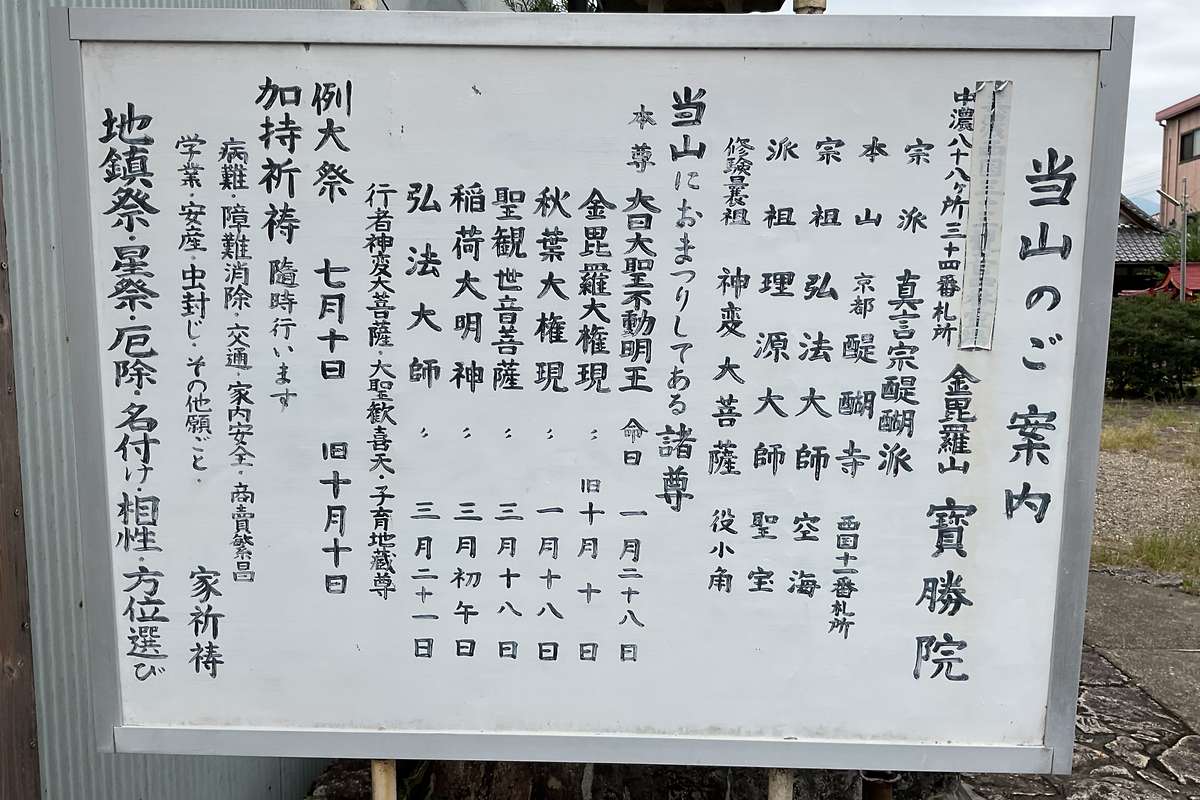 当山のご案内
中濃八十八ヶ所三十四番札所 金毘羅山 寶勝院
宗派 真言宗醍醐派
本山 京都 醍醐寺 西国十一番札所
宗祖 弘法大師 空海
派祖 理源大師 聖宝
修験曩祖 神変大菩薩 役小角
当山におまつりしてある諸尊
本尊 大日大聖不動明王 命日 一月二十八日
金毘羅大権現 〃 旧十月十日
秋葉大権現 〃 一月十八日
聖観世音菩薩 〃 三月十八日
稲荷大明神 〃 三月初午日
弘法大師 〃 三月二十一日
行者神変大菩薩・大聖歓喜天・子育地蔵尊
例大祭 七月十日 旧十月十日
加持祈祷 隨時行います
病難・障難消除・交通・家内安全・商賣繁昌
学業・安産・虫封じ・その他願ごと・ 家祈祷
地鎮祭・星祭・厄除・名付け・相性・方位選び